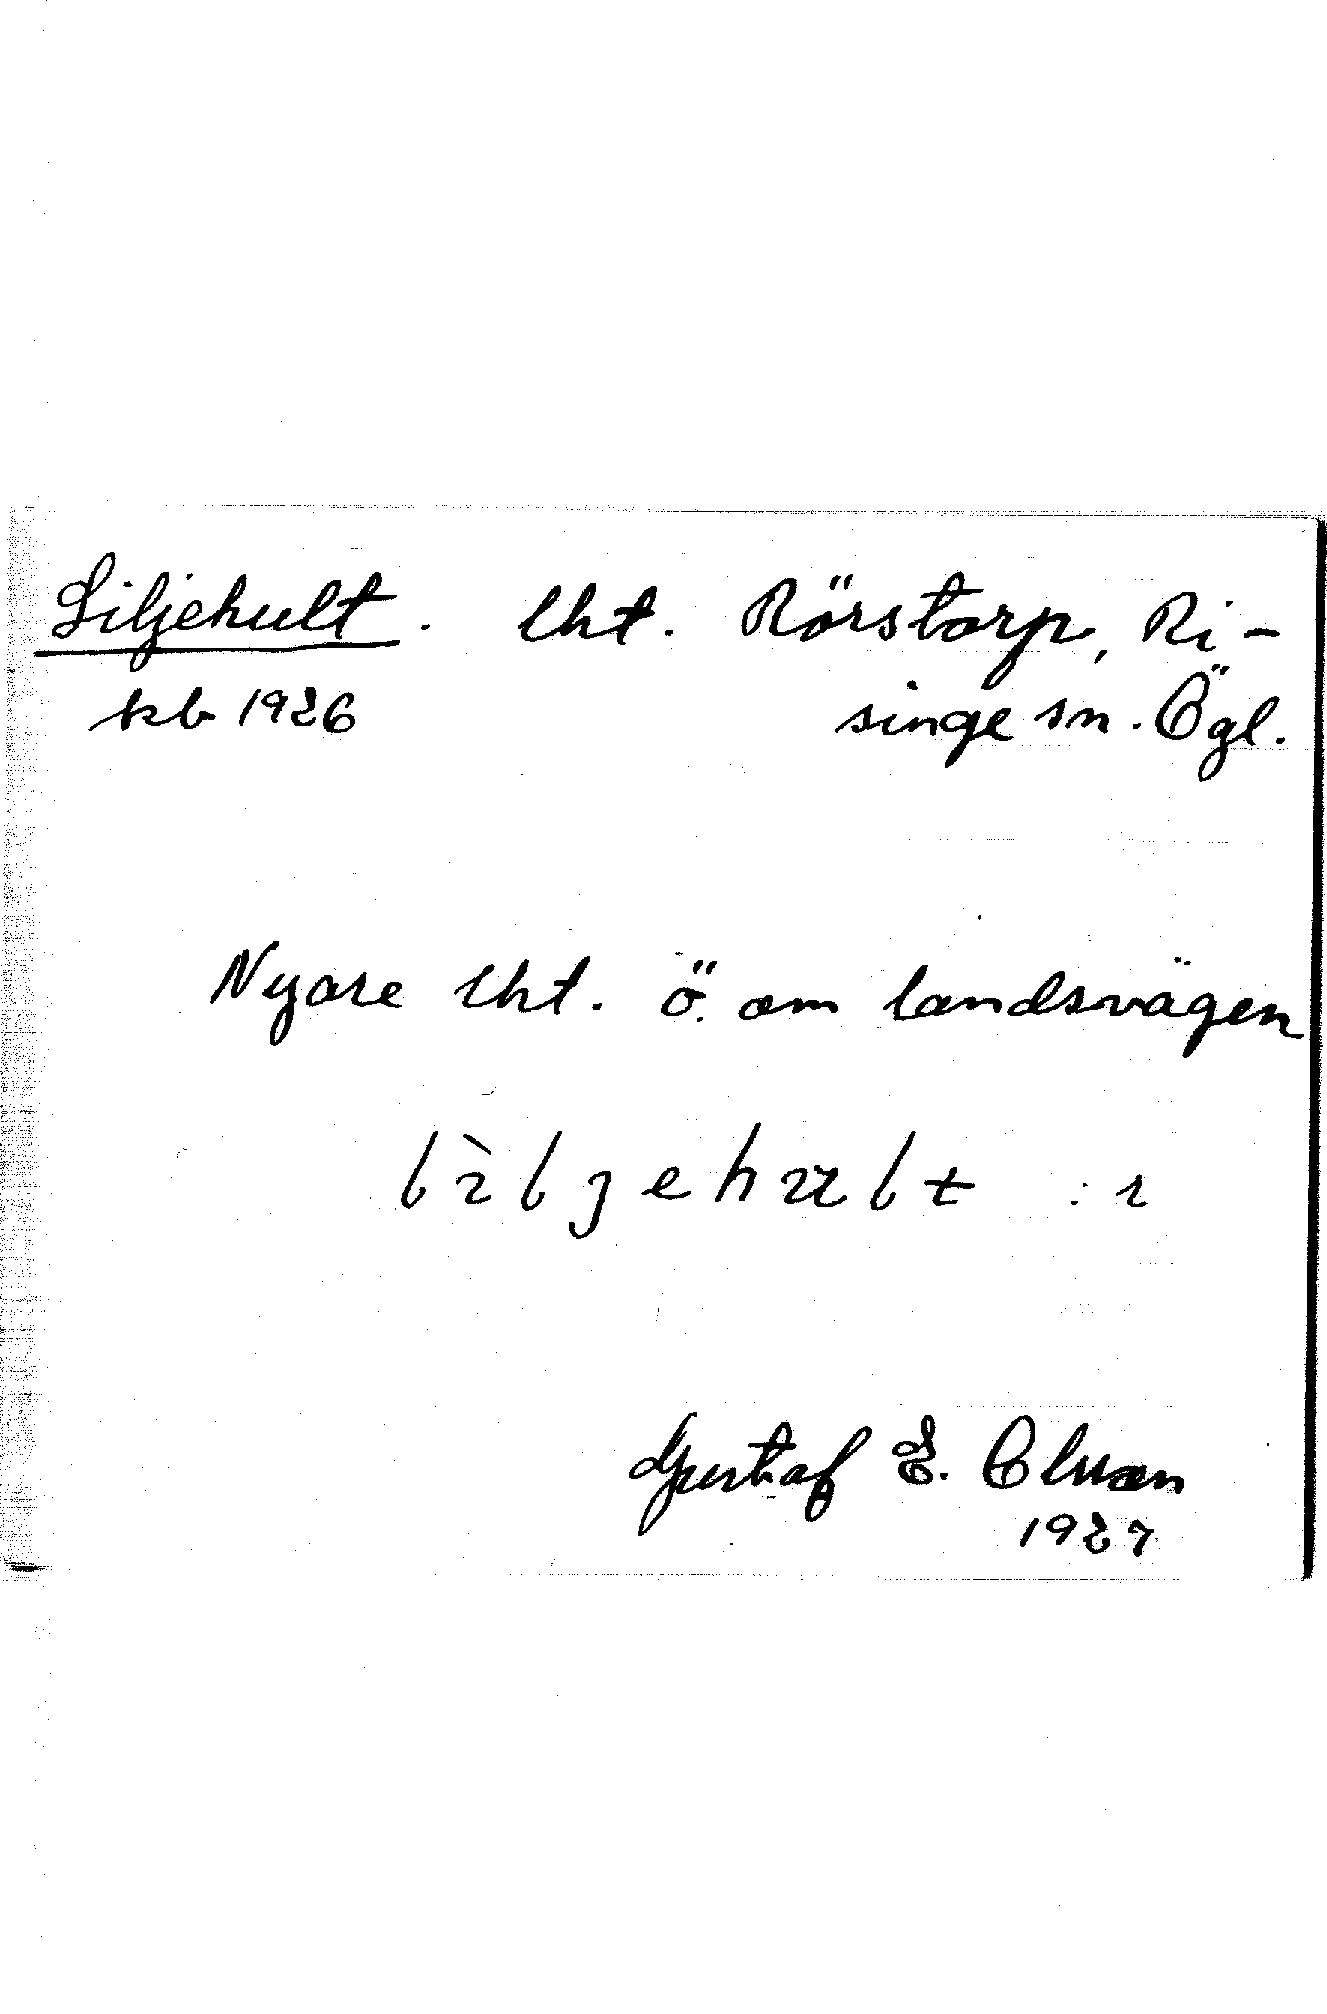 Liljehult. lht. Rörstorp, Ri-
kb 1926 singe sn. Ögl.
Nyare lht. ö. om landsvägen
lìljehult : 1
Gustaf E.
1927